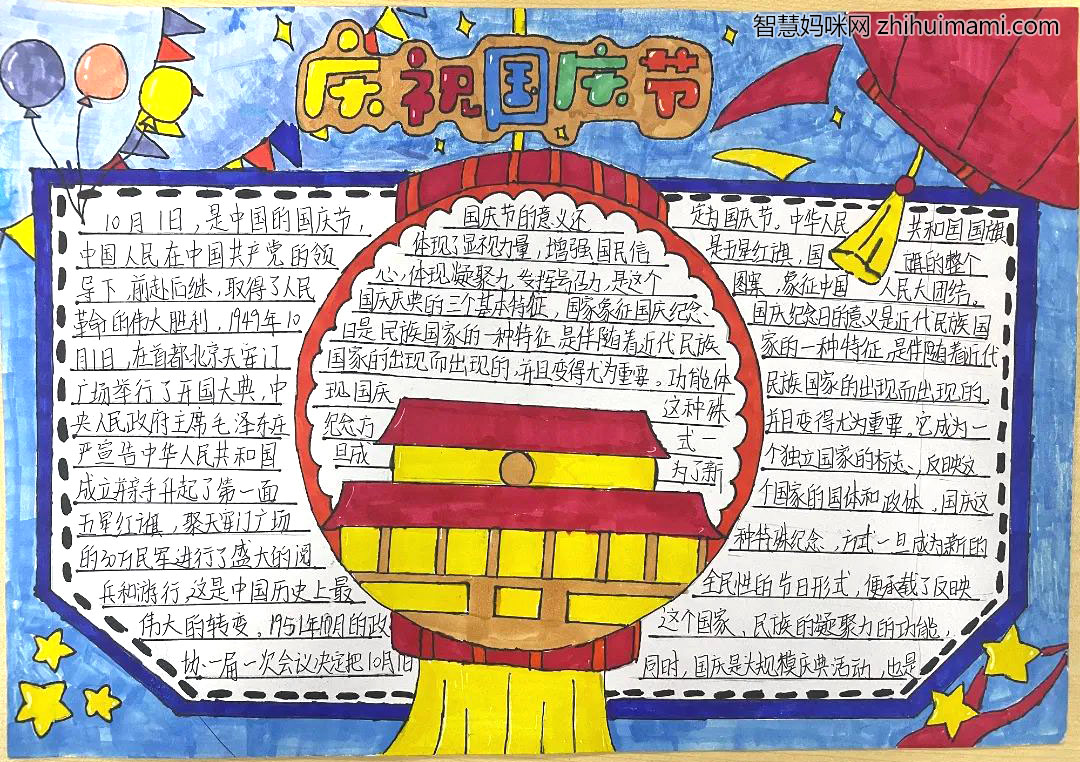 智慧妈咪网 zhihuimami.com
庆祝国庆节
10月1日,是中国的国庆节,
中国人民在中国共产党的领
导下,前赴后继,取得了人民
革命的伟大胜利,1949年10
月1日,在首都北京天安门
广场举行了开国大典,中
央人民政府主席毛泽东庄
严宣告中华人民共和国
成立并亲手升起了第一面
五星红旗,聚天安门广场
的30万民军进行了盛大的阅
兵和游行,这是中国历史上最
伟大的转变。1951年10月的政
协一届一次会议决定把10月1日
国庆节的意义还
体现了显视力量,增强国民信
心,体现凝聚力,发挥号召力,是这个
国庆庆典的三个基本特征,国家象征国庆纪念
日是民族国家的一种特征,是伴随着近代民族
国家的出现而出现的,并且变得尤为重要。功能体
现国庆 这种殊
纪念方 式一
旦成 为了新
定为国庆节。中华人民 共和国国旗
是五星红旗,国 旗的整个
图案,象征中国 人民大团结。
国庆纪念日的意义是近代民族国
家的一种特征,是伴随着近代
民族国家的出现而出现的,
并且变得尤为重要。它成为一
个独立国家的标志,反映这
个国家的国体和政体,国庆这
种特殊纪念,方式一旦成为新的
全民性的节日形式,便承载了反映
这个国家、民族的凝聚力的功能,
同时,国庆是大规模庆典活动,也是